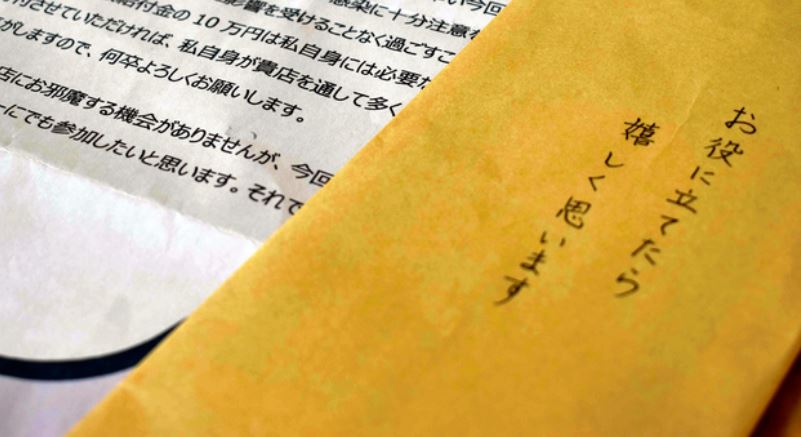 感染に十分注意
影響を受けることなく過ごすこ
給付金の10万円は私自身には必要
付させていただければ、私自身が貴店を通して多く
がしますので、何卒よろしくお願いします。
店にお邪魔する機会がありませんが、今回
ーにでも参加したいと思います。それで
お役に立てたら
嬉しく思います